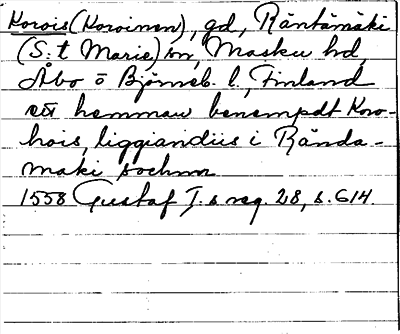 Korois (Koroinen), gd, Räntämäki
(S:t Marie) sn, Masku hd,
Åbo o Björneb. l., Finland
ett hemman benempdt Koro-
hois, liggiandiis i Rända-
maki sochnn
1558 Gustaf I.s reg. 28, s. 614.